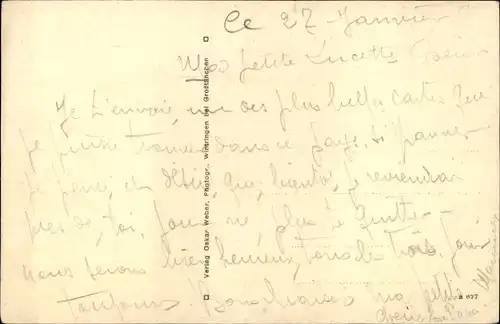 Le 27 Janvier
Ma petite Lucette
Je t'envoie, une des plus belles cartes que
je puisse trouver dans ce pays, si pauvre
Je pense, et désire, que bientôt, je reviendrai
près de toi, pour ne plus te quitter
nous serons bien heureux, tous les trois, pour
toujours. Bons baisers ma petite
Verlag Oskar Weber, Photogr., Wintringen bei Großtänchen
B 677